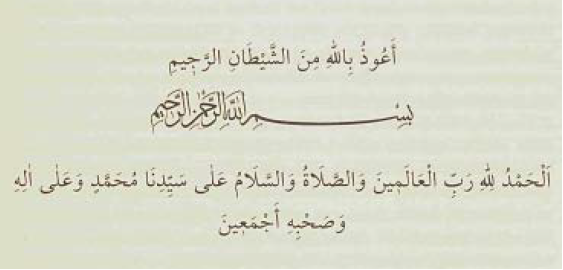 أَعُوذُ بِاللّٰهِ مِنَ الشَّيْطَانِ الرَّجٖيمِ
بِسْمِ اللّٰهِ الرَّحْمٰنِ الرَّحٖيمِ
اَلْحَمْدُ لِلّٰهِ رَبِّ الْعَالَمٖينَ وَالصَّلَاةُ وَالسَّلَامُ عَلٰى سَيِّدِنَا مُحَمَّدٍ وَعَلٰى اٰلِهِ
وَصَحْبِهِ أَجْمَعٖينَ